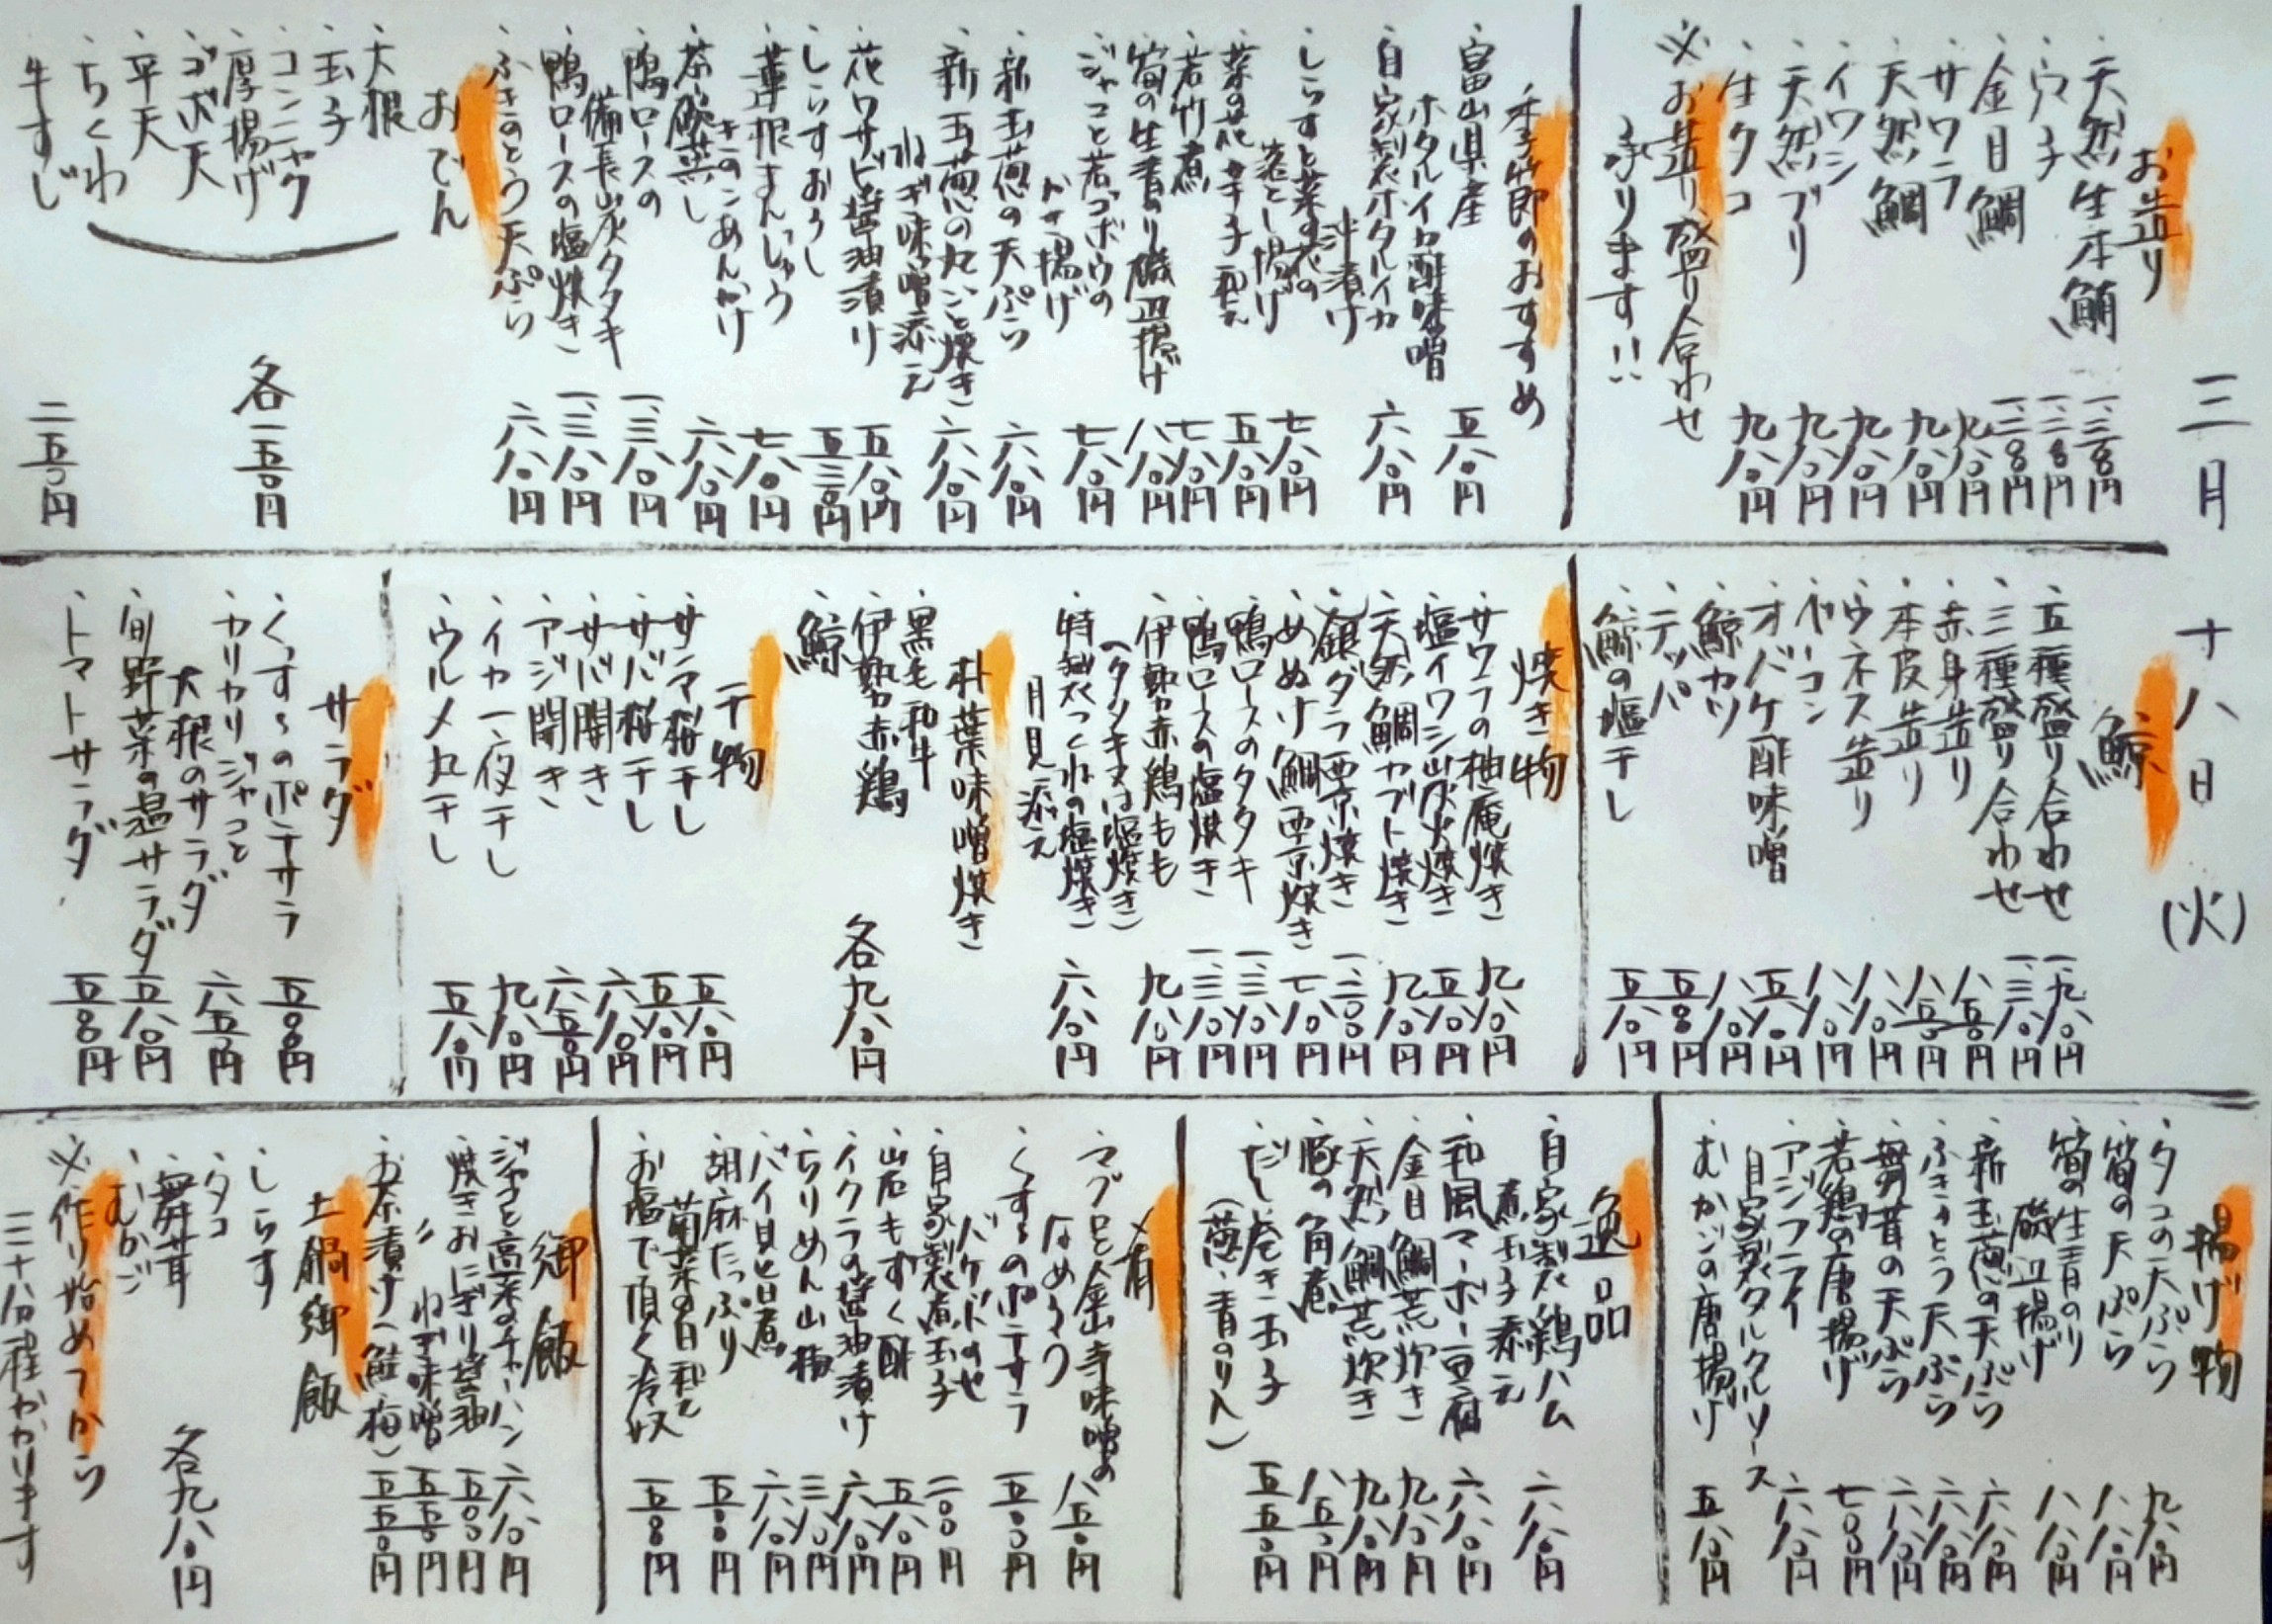 三月 十八日 (火)
お造り
・天然生本鮪 一、三八〇円
・穴子 一、二八〇円
・金目鯛 一、二八〇円
・サワラ 九八〇円
・天然鯛 九八〇円
・イワシ 九八〇円
・天然ブリ 九八〇円
・生タコ 九八〇円
※お造り盛り合わせ
承ります!!
季節のおすすめ
・富山県産
ホタルイカ酢味噌 五八〇円
・自家製ホタルイカ
沖漬け 六八〇円
・しらすと菜の花の
落とし揚げ 七八〇円
・菜の花辛子和え 五八〇円
・若竹煮 七八〇円
・筍の生青のり磯辺揚げ 八八〇円
・ジャコと若ゴボウの
かき揚げ 七八〇円
・新玉葱の天ぷら 六八〇円
・新玉葱の丸ごと焼き
ねぎ味噌添え 六八〇円
・花ワサビ醤油漬け 五八〇円
・しらすおろし 五三〇円
・蓮根まんじゅう
きのこあんかけ 七八〇円
・茶碗蒸し 六八〇円
・鴨ロースの
備長炭タタキ 一、三八〇円
・鴨ロースの塩焼き 一、三八〇円
・ふきのとう天ぷら 六八〇円
おでん
・大根
・玉子
・コンニャク
・厚揚げ
・ゴボ天
・平天
・ちくわ
各一五〇円
・牛すじ 二五〇円
鯨
・五種盛り合わせ 一、九八〇円
・三種盛り合わせ 一、三八〇円
・赤身造り 八五〇円
・本皮造り 八五〇円
・ウネス造り 八八〇円
・ベーコン 八八〇円
・オバケ酢味噌 五八〇円
・鯨カツ 八八〇円
・テッパ 五五〇円
・鯨の塩干し 五八〇円
焼き物
・サワラの柚庵焼き 九八〇円
・塩イワシ炭火焼き 五八〇円
・天然鯛カブト焼き 九八〇円
・銀ダラ西京焼き 一、二〇〇円
・めぬけ鯛西京焼き 七八〇円
・鴨ロースのタタキ 一、三八〇円
・鴨ロースの塩焼き 一、三八〇円
・伊勢赤鶏もも
(タタキ又は塩焼き) 九八〇円
・特製つくねの塩焼き
月見添え 六八〇円
朴葉味噌焼き
・黒毛和牛
・伊勢赤鶏
・鯨
各九八〇円
干物
・サンマ桜干し 五八〇円
・サバ桜干し 五八〇円
・サバ開き 六八〇円
・アジ開き 六五〇円
・イカ一夜干し 九八〇円
・ウルメ丸干し 五八〇円
サラダ
・くずしのポテサラ 五〇〇円
・カリカリジャコと
大根のサラダ 六五〇円
・旬野菜の温サラダ 五八〇円
・トマトサラダ 五五〇円
揚げ物
・タコの天ぷら 九八〇円
・筍の天ぷら 八八〇円
・筍の生青のり
磯辺揚げ 八八〇円
・新玉葱の天ぷら 六八〇円
・ふきのとう天ぷら 六八〇円
・舞茸の天ぷら 六八〇円
・若鶏の唐揚げ 七〇〇円
・アジフライ
自家製タルタルソース 六八〇円
・むかごの唐揚げ 五八〇円
逸品
・自家製鶏ハム
煮玉子添え 六八〇円
・和風マーボー豆腐 六八〇円
・金目鯛荒炊き 九八〇円
・天然鯛荒炊き 九八〇円
・豚の角煮 八五〇円
・だし巻き玉子
(葱・青のり入) 五五〇円
肴
・マグロと金山寺味噌の
なめろう 八五〇円
・くずしのポテサラ
バケットのせ 五〇〇円
・自家製煮玉子 二〇〇円
・岩もずく酢 五八〇円
・イクラの醤油漬け 六八〇円
・ちりめん山椒 三八〇円
・バイ貝と煮 六八〇円
・胡麻たっぷり
菊菜の白和え 五五〇円
・お塩で頂く冷奴 五五〇円
御飯
・ジャコと高菜のチャーハン 六八〇円
・焼きおにぎり醤油 五〇〇円
・〃 ねぎ味噌 五五〇円
・お茶漬け(鮭・梅) 五五〇円
土鍋御飯
・しらす
・タコ
・舞茸
・むかご
各九八〇円
※作り始めてから
三十分程かかります